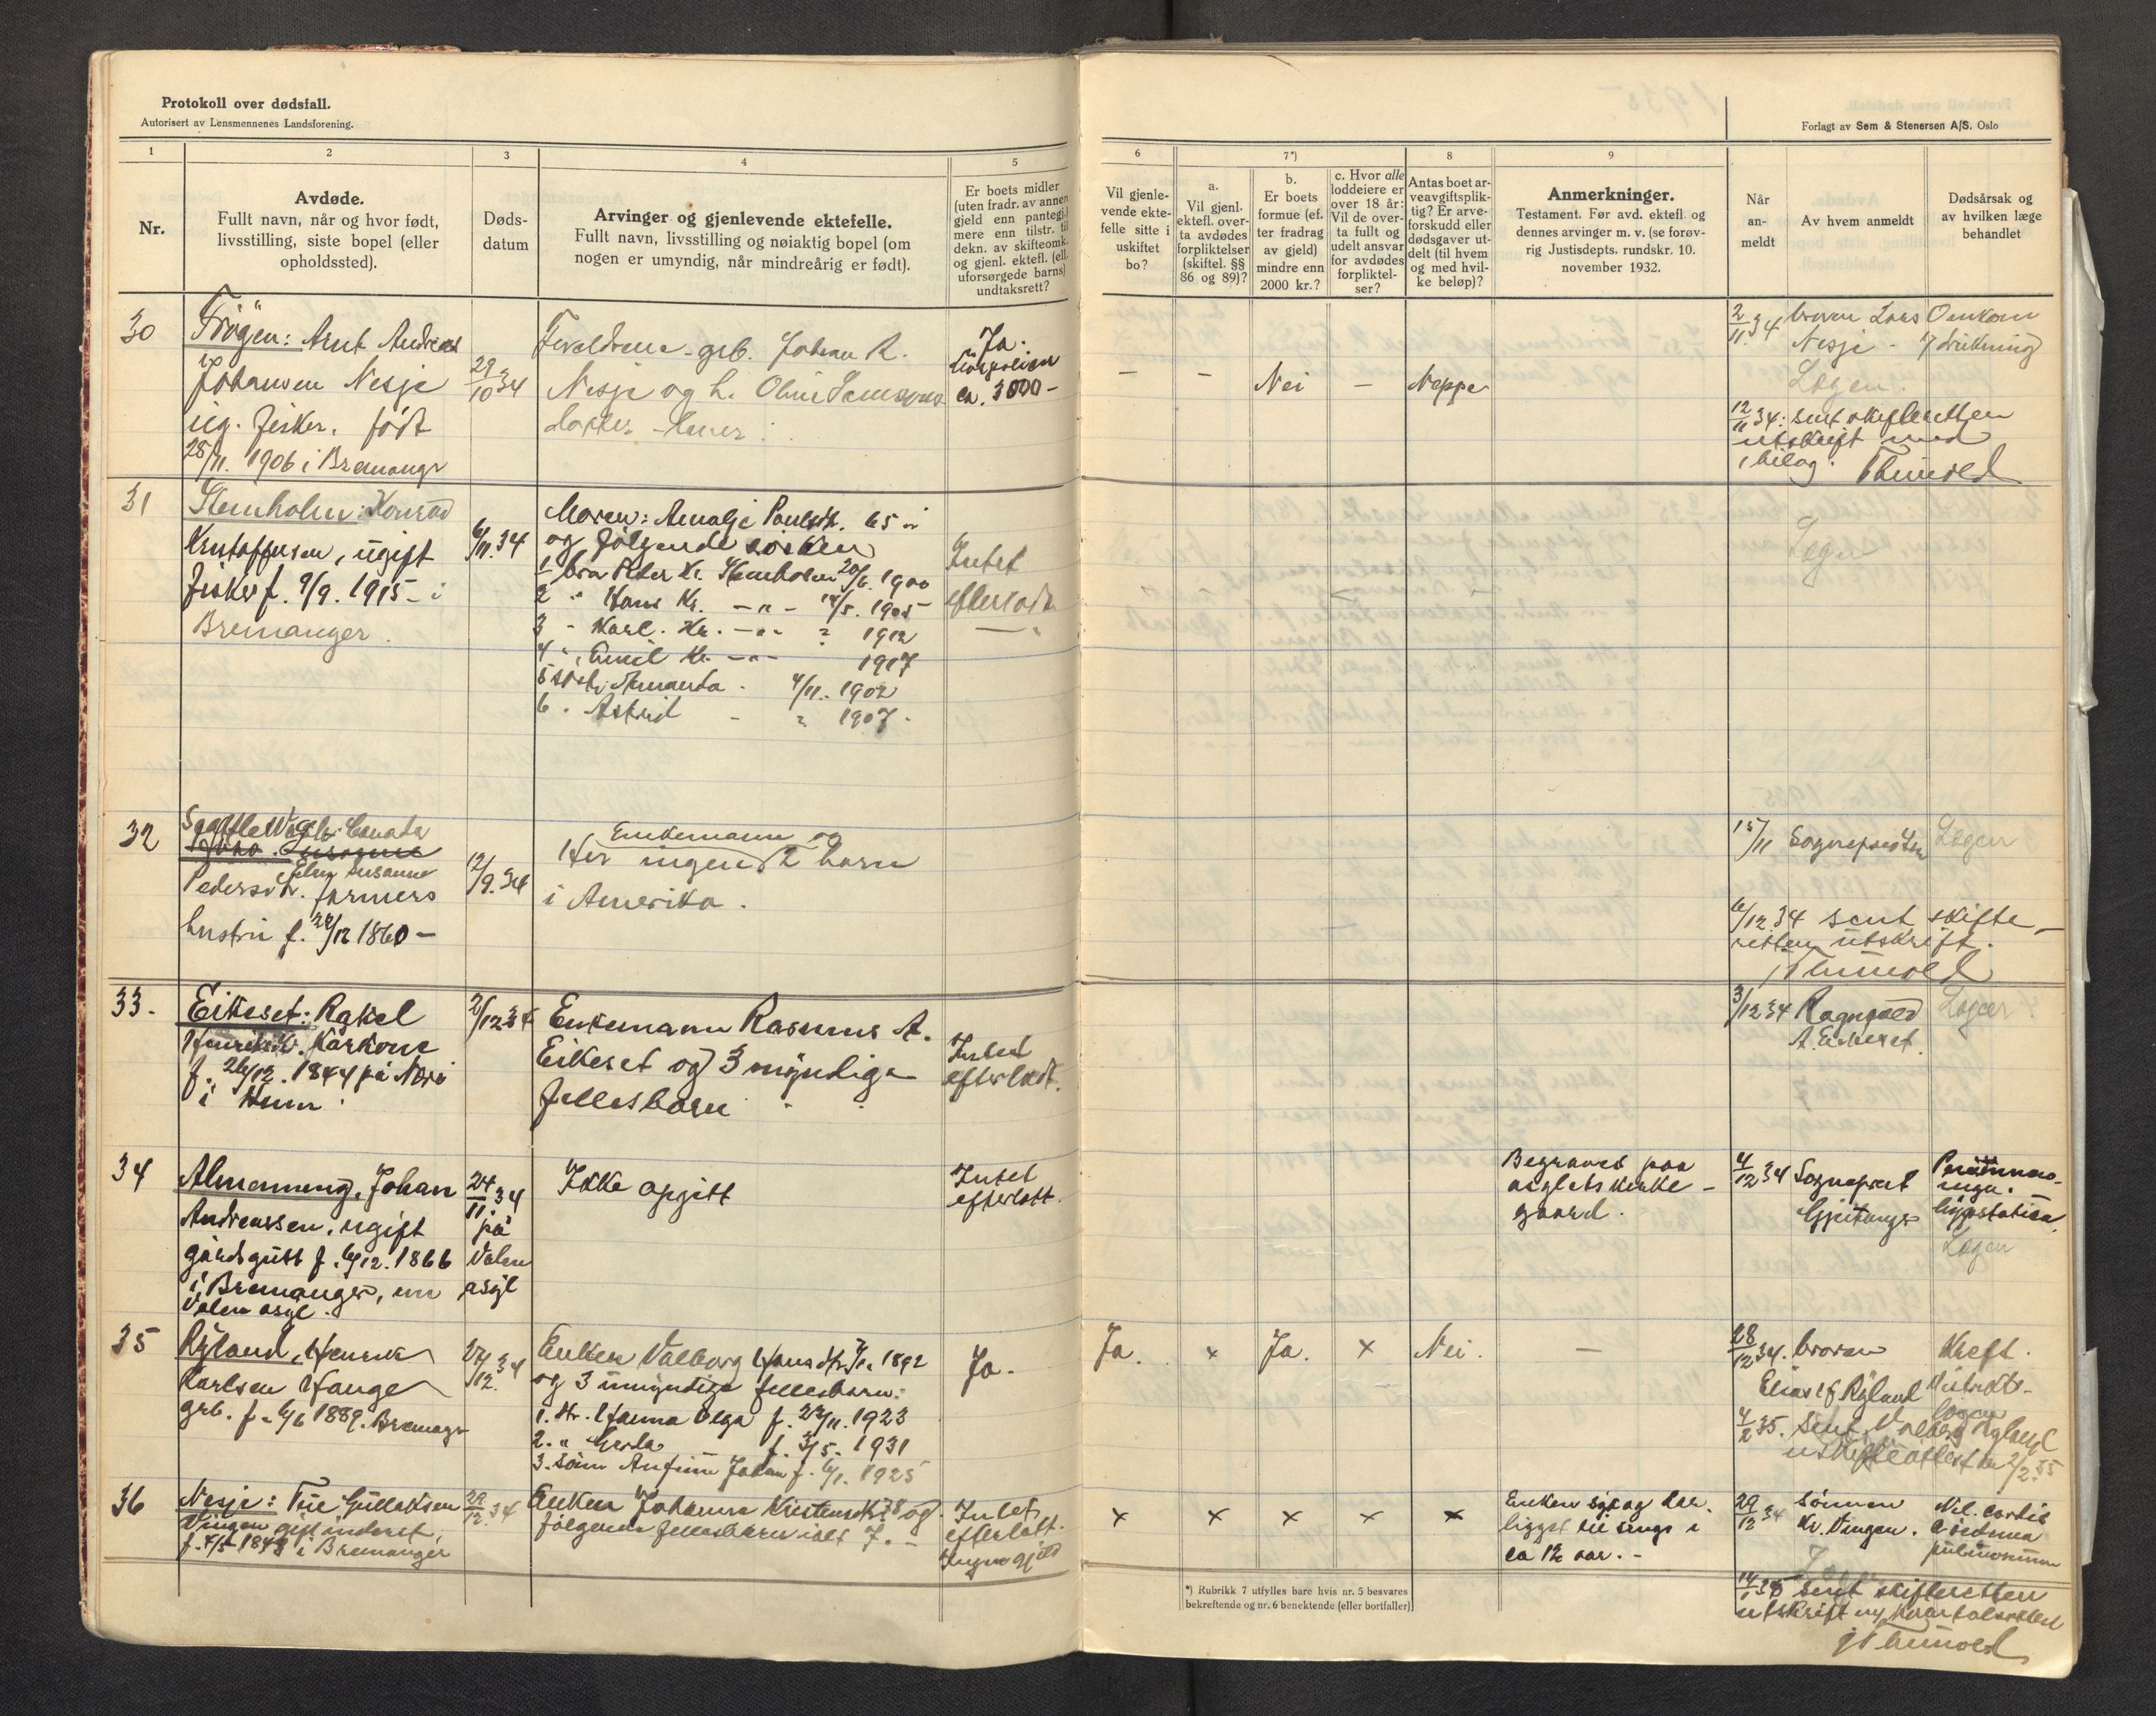 Protokoll over dødsfall.
Autorisert av Lensmennenes Landsforening.
Forlagt av Sem & Stenersen A/S. Oslo
1
2
3
4
5
6
7*)
8
9
Nr.
Avdøde.
Fullt navn, når og hvor født,
livsstilling, siste bopel (eller
opholdssted).
Døds-
datum
Arvinger og gjenlevende ektefelle.
Fullt navn, livsstilling og nøiaktig bopel (om
nogen er umyndig, når mindreårig er født).
Er boets midler
(uten fradr. av annen
gjeld enn pantegj.)
mere enn tilstr. til
dekn. av skifteomk.
og gjenl. ektefl. (ell.
uforsørgede barns)
undtaksrett?
Vil gjenle-
vende ekte-
felle sitte i
uskiftet
bo?
a.
Vil gjenl.
ektefl. over-
ta avdødes
forpliktelser
(skiftel. §§
86 og 89)?
b.
Er boets
formue (ef-
ter fradrag
av gjeld)
mindre enn
2000 kr.?
c. Hvor alle
loddeiere er
over 18 år:
Vil de over-
ta fullt og
udelt ansvar
for avdødes
forpliktel-
ser?
Antas boet ar-
veavgiftsplik-
tig? Er arve-
forskudd eller
dødsgaver ut-
delt (til hvem
og med hvil-
ke beløp)?
Anmerkninger.
Testament. Før avd. ektefl. og
dennes arvinger m. v. (se forøv-
rig Justisdepts. rundskr. 10.
november 1932.
Når
an-
meldt
Av hvem anmeldt
Dødsårsak og
av hvilken læge
behandlet
30
Frøgen: Arnt Andreas
Johansen Nesje
ug. fisker. født
28/11. 1906 i Bremanger
29/10 34
Foreldrene - grb. Johan R.
Nesje og h. Oline
Ja.
ca. 3000 -
- - Nei - Neppe
2/11 34 broren Lars
Nesje -
Omkom
v/ drukning
12/11 34: sent skifteretten
utskrift med
1 bilag.
31
Konrad
ugift
fisker f. 9/9. 1915 - i
Bremanger.
6/11. 34
Moren: Amalje Paulsdtr. 65 år
og følgende søsken
1 bro Peter Kr. 20/6. 1900
2 " Hans Kr. - " - 14/5. 1905
3 - Karl. Kr. - " - 1912
4 " Emil Kr. - " - 1917
5 søst. Amanda - 4/11. 1902
6 " Astrid - 1907.
Intet
efterladt
Legen
32
Canada
Elen Susanne
Pedersdtr. farmers
hustru f. 1860 -
12/9. 34
Enkemann og
Her ingen 2 barn
i Amerika.
15/11 Sognepresten Legen
6/12 34 sent skifte-
retten utskrift.
33.
Eikeset: Rakel
f. 26/12. 1844 på
i
2/12 34
Enkemann Rasmus A.
Eikeset og 3 myndige
fellesbarn
Intet
efterladt.
3/12 34 Ragnvald
A. Eikeset.
34
Almenning, Johan
Andreassen, ugift
gårdsgutt f. 6/12. 1866
i Bremanger,
Valen asyl.
24/11 34
på
Valen
asyl
Ikke opgitt
Intet
efterlatt.
Begravet paa
asylets kirke-
gaard.
4/12 34 Sogneprest
hypostatica
Legen
35
Ryland, Henrik
Karlsen Hauge
grb. f. 6/6 1889. Bremanger
24/12. 34
Enken Valborg Hansdtr. 1892
og 3 umyndige fellesbarn:
1. dtr. Hanna Olga f. 22/11. 1923
2. " Gerda f. 3/5. 1931
3. sønn Anfinn Johan f. 6/1. 1925
Ja.
Ja. × Ja. × Nei. -
28/12 34. broren
Elias Ryland
Kreft.
Distrikts-
legen
4/2 35. Sent Valborg Ryland
uskifteattest 2/2. 35
36
Nesje:
Vingen
f. 1843 i Bremanger
29/12. 34
Enken Johanne 78 og
følgende fellesbarn ialt 7. -
Intet
efterlatt.
Ingen gjeld
× × × × ×
Enken syk og har
ligget til sengs i
ca 1½ aar. -
29/12 34 sønnen
Kr. Vingen.
Vit. cordis
Oedema
pulmonum
14/1 35 sent skifteretten
utskrift
*) Rubrikk 7 utfylles bare hvis nr. 5 besvares
bekreftende og nr. 6 benektende (eller bortfaller)